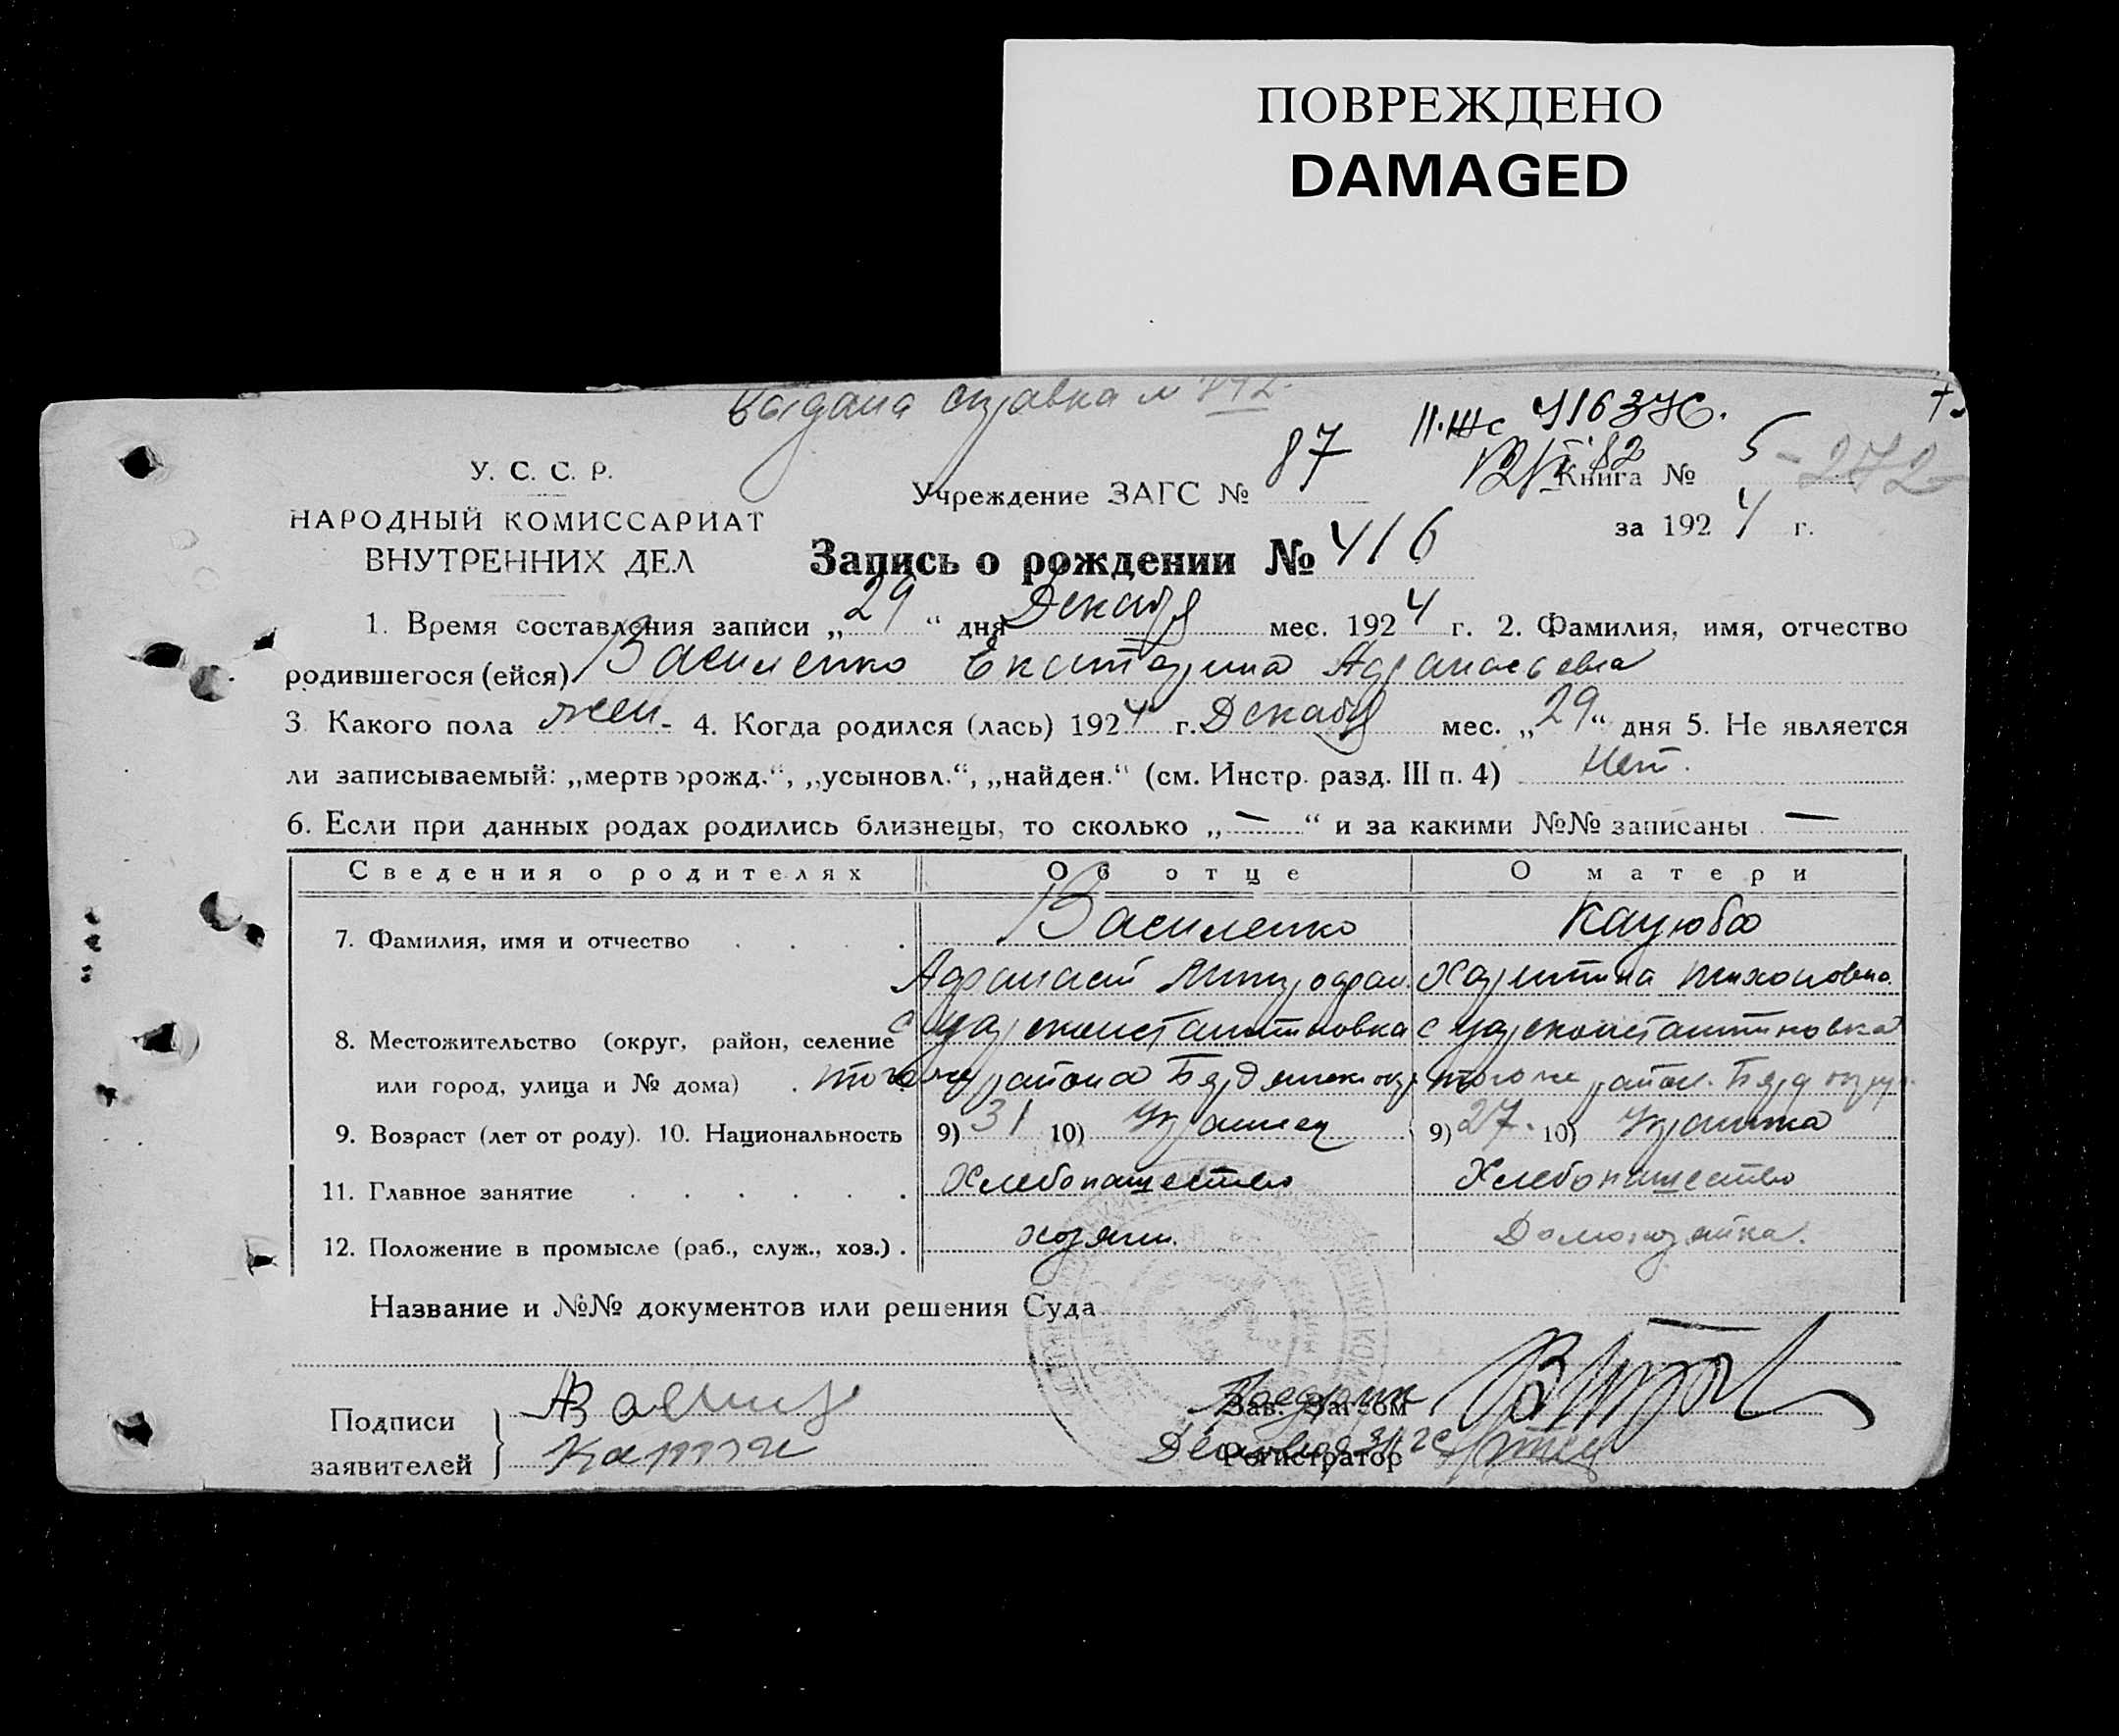 ПОВРЕЖДЕНО
DAMAGED
Выдана справка №
У. С. С. Р.
НАРОДНЫЙ КОМИССАРИАТ
ВНУТРЕННИХ ДЕЛ
Учреждение ЗАГС № 87
Книга № 5 - 272
за 1924 г.
Запись о рождении № 416
1. Время составления записи „29“ дня Декабр мес. 1924 г. 2. Фамилия, имя, отчество
родившегося (ейся) Василенко Екатерина Афанасьевна
3. Какого пола жен- 4. Когда родился (лась) 1924 г. Декабр мес. „29“ дня 5. Не является
ли записываемый: „мертворожд.“, „усыновл.“, „найден.“ (см. Инстр. разд. III п. 4) Нет.
6. Если при данных родах родились близнецы, то сколько „—“ и за какими №№ записаны —
Сведения о родителях Об отце О матери
7. Фамилия, имя и отчество Василенко Кацюба
Афанасий Митрофан. Харитина Тихоновна
8. Местожительство (округ, район, селение с Цареконстантиновка с Цареконстантиновка
или город, улица и № дома) того же района Бердянск окр того же район. Берд округ.
9. Возраст (лет от роду). 10. Национальность 9) 31 10) Украинец 9) 27. 10) Украинка
11. Главное занятие Хлебопашество Хлебопашество
12. Положение в промысле (раб., служ., хоз.) хозяин. Домохозяйка.
Название и №№ документов или решения Суда
Подписи
заявителей
Зав. Загсом
Регистратор